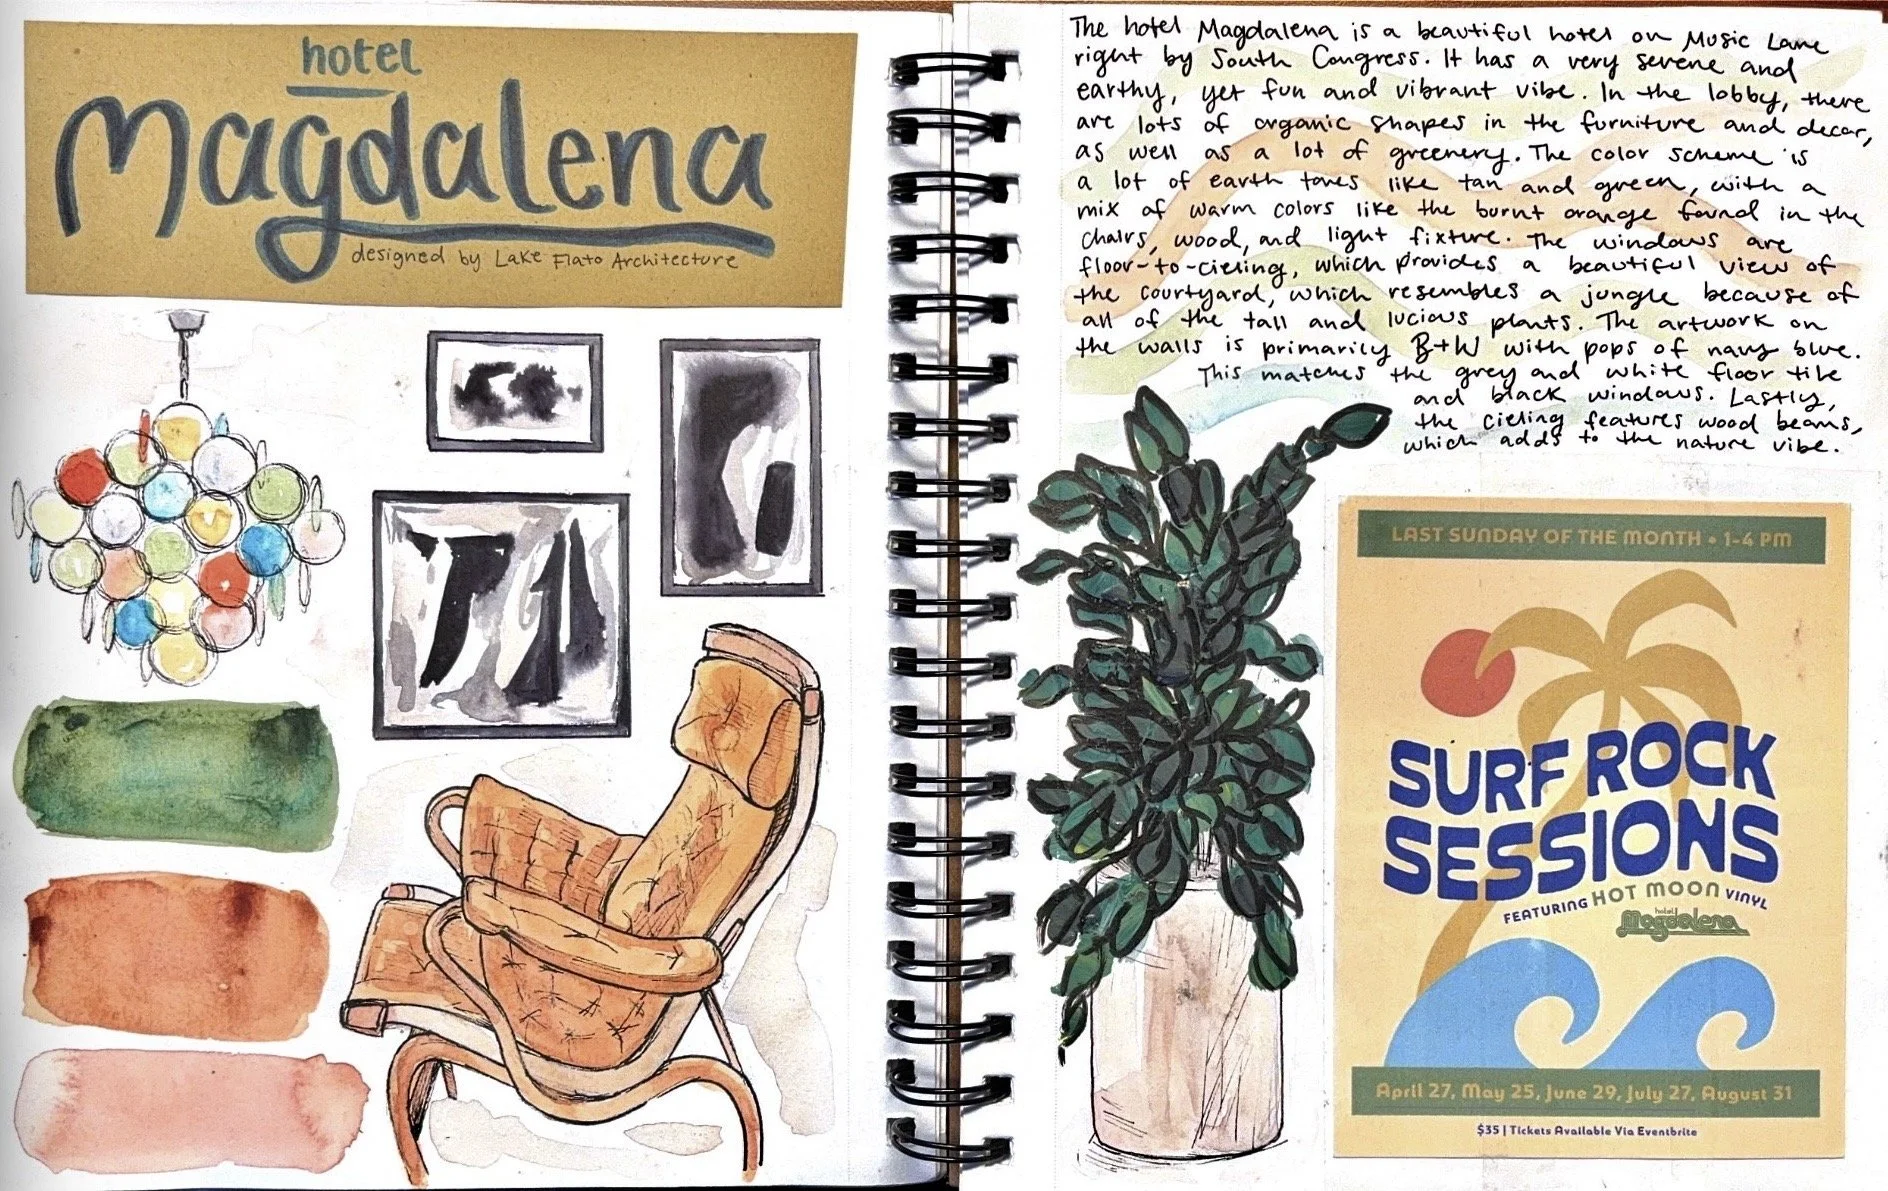 hotel
Magdalena
designed by Lake Flato Architecture
The hotel Magdalena is a beautiful hotel on Music Lane
right by South Congress. It has a very serene and
earthy, yet fun and vibrant vibe. In the lobby, there
are lots of organic shapes in the furniture and decor,
as well as a lot of greenery. The color scheme is
a lot of earth tones like tan and green, with a
mix of warm colors like the burnt orange found in the
chairs, wood, and light fixture. The windows are
floor-to-cieling, which provides a beautiful view of
the courtyard, which resembles a jungle because of
all of the tall and lucious plants. The artwork on
the walls is primarily B+W with pops of navy blue.
This matches the grey and white floor tile
and black windows. Lastly,
the cieling features wood beams,
which adds to the nature vibe.
LAST SUNDAY OF THE MONTH • 1-4 PM
SURF ROCK
SESSIONS
FEATURING HOT MOON VINYL
hotel
Magdalena
April 27, May 25, June 29, July 27, August 31
$35 | Tickets Available Via Eventbrite